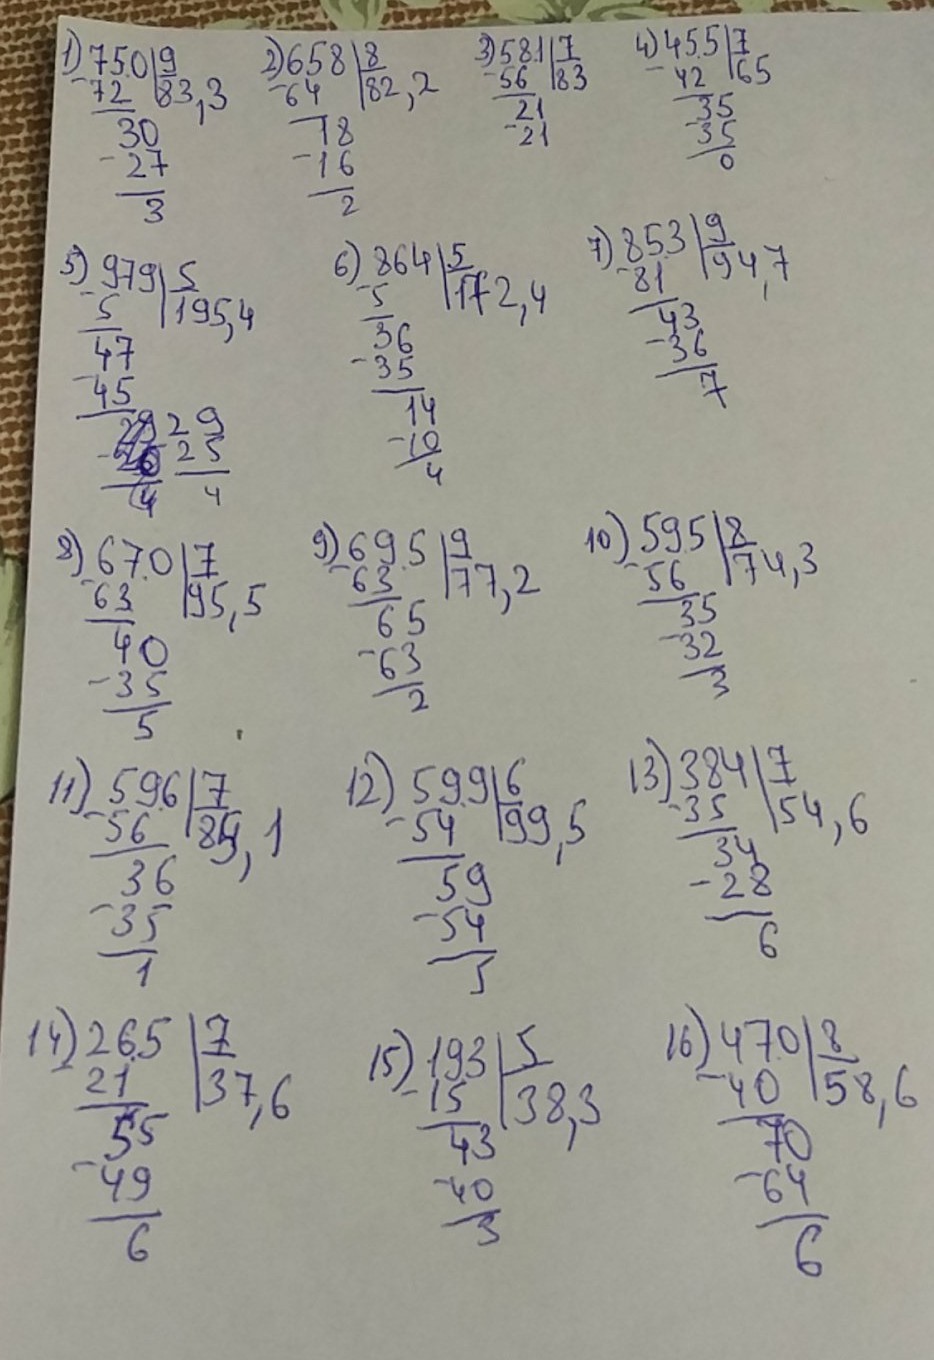 1) 75.0 9 2) 658 8 3) 58.1 7 4) 45.5 7
-72 83,3 -64 82,2 -56 83 -42 65
30 18 21 35
-27 -16 -21 -35
3 2 0
5) 979 5 6) 864 5 7) 85.3 9
-5 195,4 -5 172,4 -81 94,7
47 36 43
-45 -35 -36
29 14 7
25 -10
4 4
8) 67.0 7 9) 69.5 9 10) 59.5 8
-63 95,5 -63 77,2 -56 74,3
40 65 35
-35 -63 -32
5 2 3
11) 59.6 7 12) 59.9 6 13) 38.4 7
-56 85,1 -54 99,5 -35 54,6
36 59 34
-35 -54 -28
1 5 6
14) 26.5 7 15) 193 5 16) 47.0 8
-21 37,6 -15 38,3 -40 58,6
55 43 70
-49 -40 -64
6 3 6